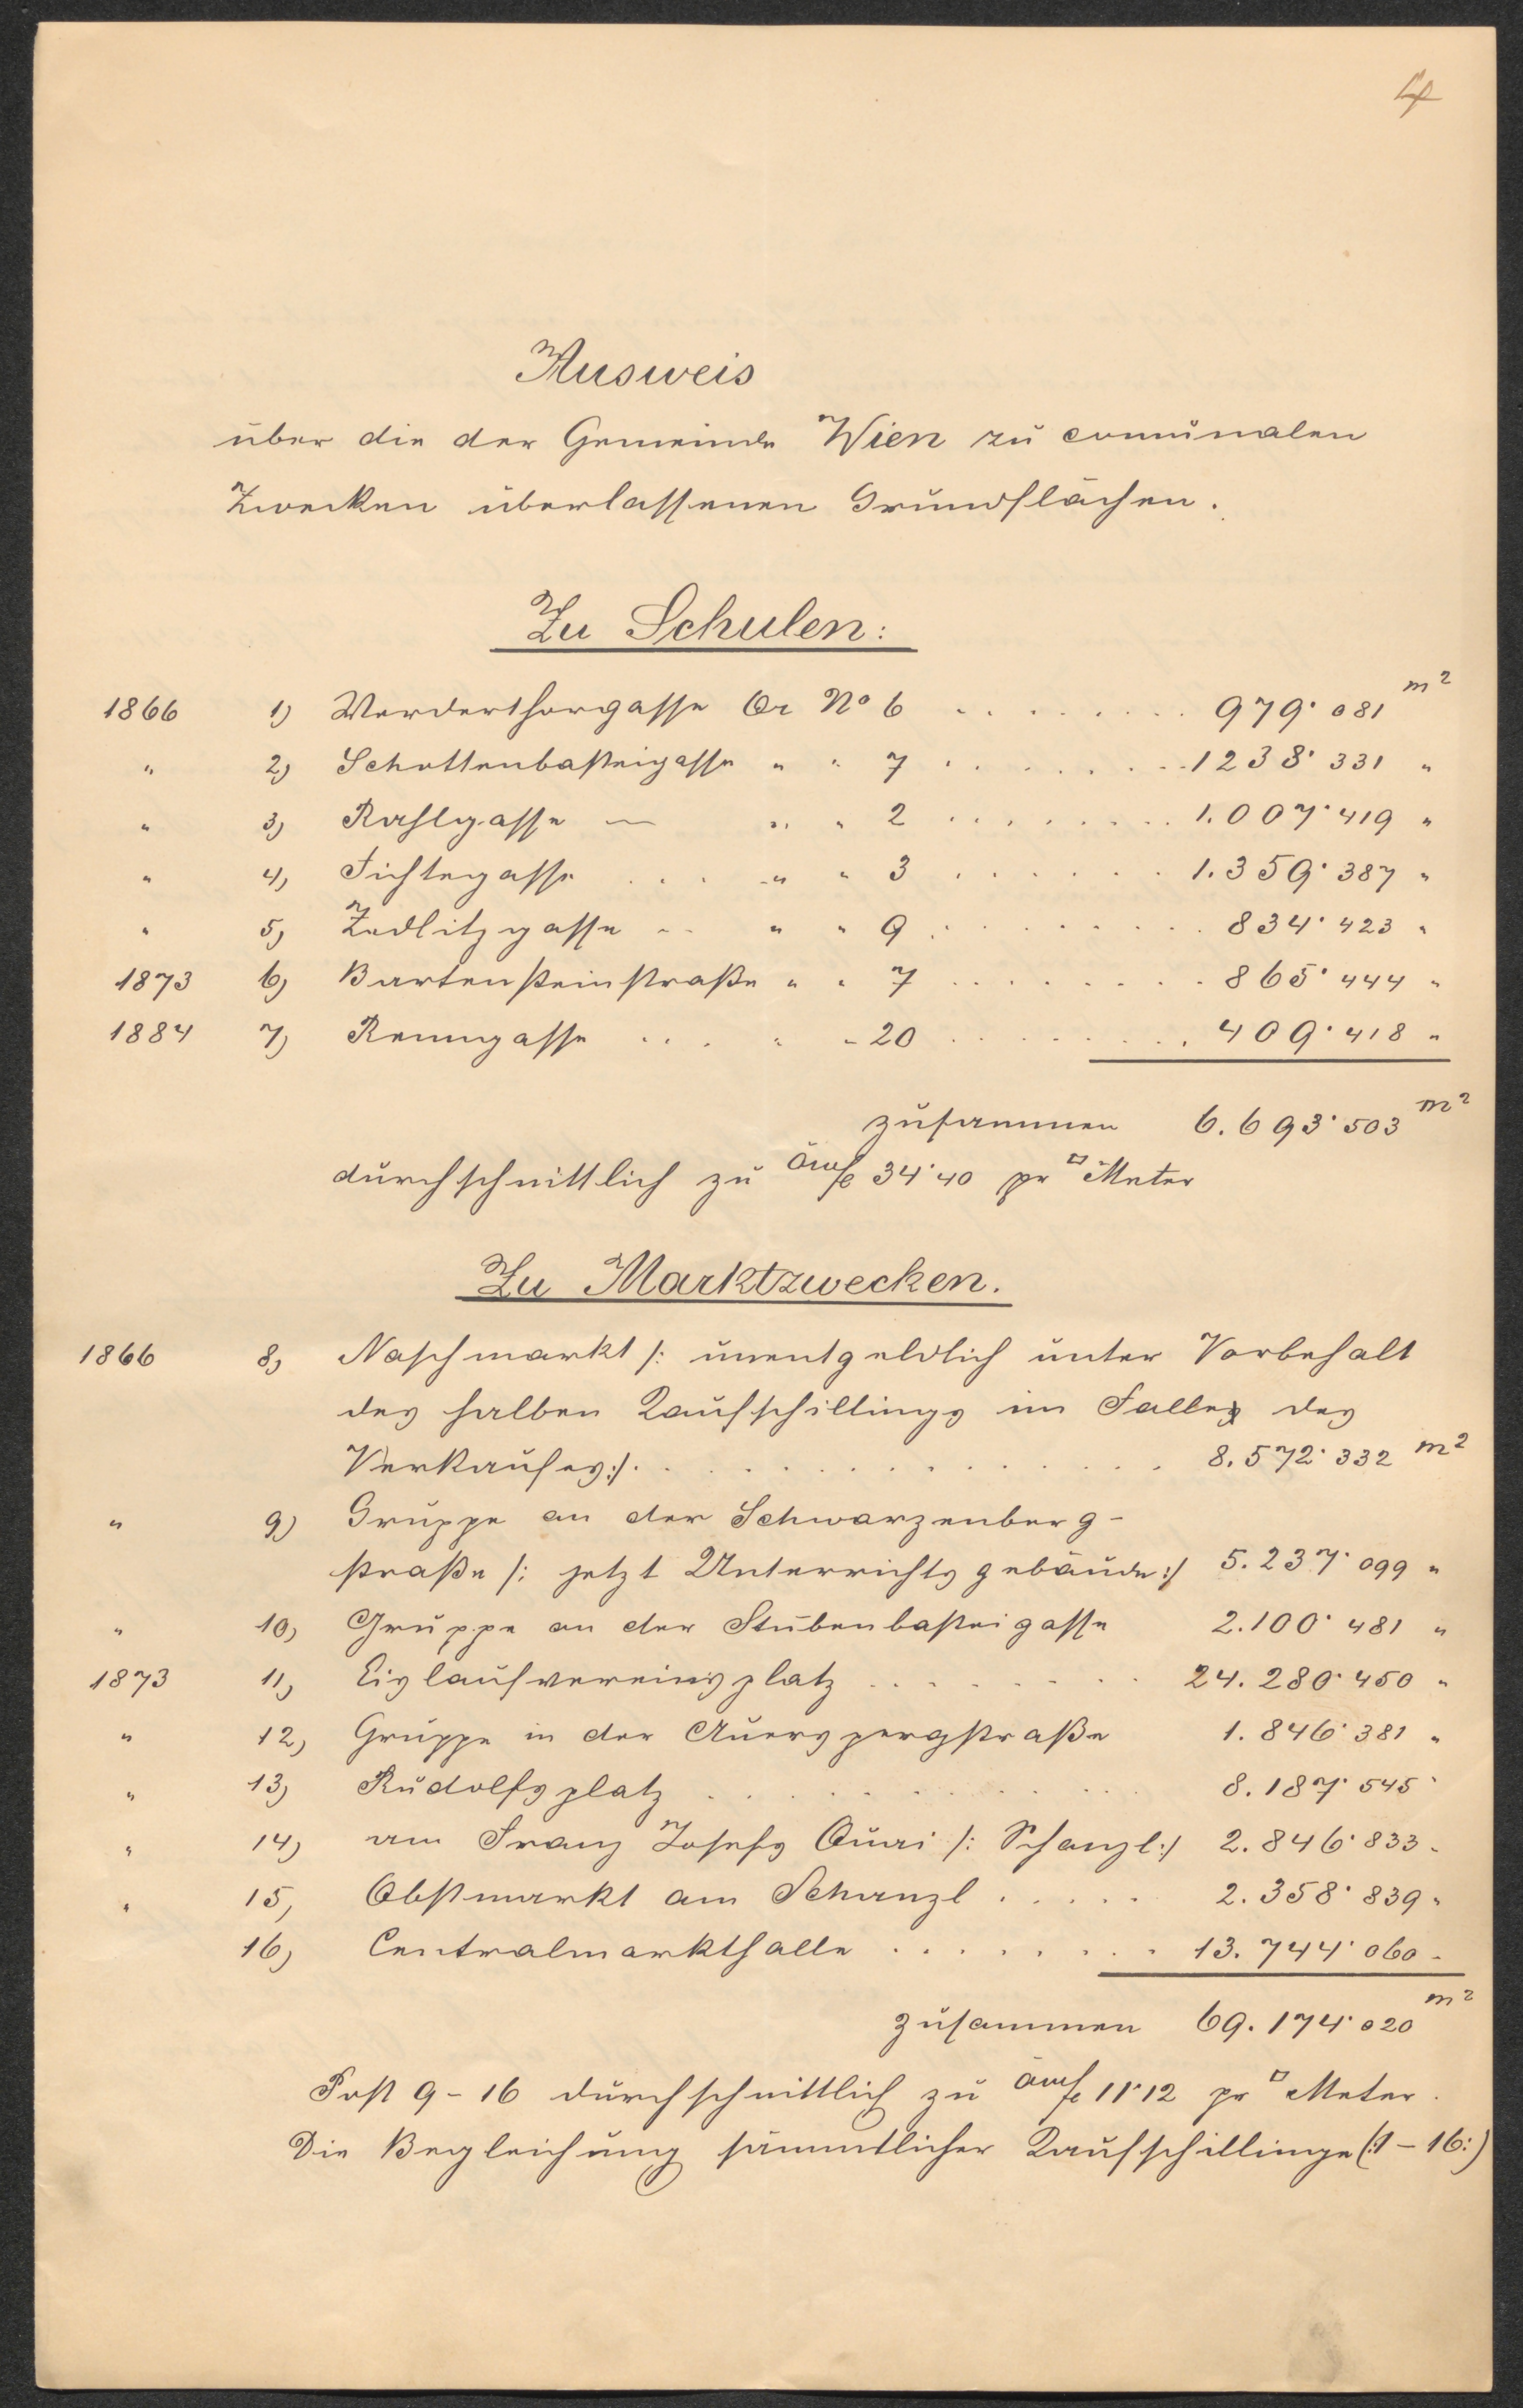 4
Ausweis
über die der Gemeinde Wien zu comunalen
Zwecken überlassenen Grundflächen.
Zu Schulen:
1866 1) Werderthorgasse Or No 6 . . . . . . . . . 979· 081 m2
" 2) Schottenbasteigasse " " 7 . . . . . . . . 1238· 331 "
" 3) Rahlgasse — " " 2 . . . . . . . . 1.007· 419 "
" 4) Fichtegasse . . . " " 3 . . . . . . 1.359· 387 "
" 5) Zedlitzgasse - - " " 9 . . . . . . . . 834· 423 "
1873 6) Bartensteinstraße " " 7 . . . . . . . . 865· 444 "
1884 7) Renngasse . . . " " 20 . . . . . . . . 409· 418 "
zusammen 6.693· 503 m2
durchschnittlich zu öWf 34·40 pr □ Meter
Zu Marktzwecken.
1866 8) Naschmarkt /: unentgeldlich unter Vorbehalt
des halben Kaufschillings im Falle des
Verkaufes :/. . . . . . . . . . . . . 8.572· 332 m2
" 9) Gruppe an der Schwarzenberg-
straße /: jetzt Unterrichtsgebäude :/ 5.237· 099 "
" 10) Gruppe an der Stubenbasteigasse 2.100· 481 "
1873 11) Eislaufvereinsplatz . . . . . . . 24.280· 450 "
" 12) Gruppe in der Auerspergstraße 1.846· 381 "
" 13) Rudolfsplatz . . . . . . . . . . 8.187· 545 "
" 14) am Franz Josefs Quai /: Schanzl :/ 2.846· 833 "
" 15) Obstmarkt am Schanzl . . . . . 2.358· 839 "
16) Centralmarkthalle . . . . . . . . 13.744· 060 "
zusammen 69.174· 020 m2
Post 9 - 16 durchschnittlich zu öWf 11·12 pr □ Meter.
Die Begleichung sämmtlicher Kaufschillinge (:1 - 16:)